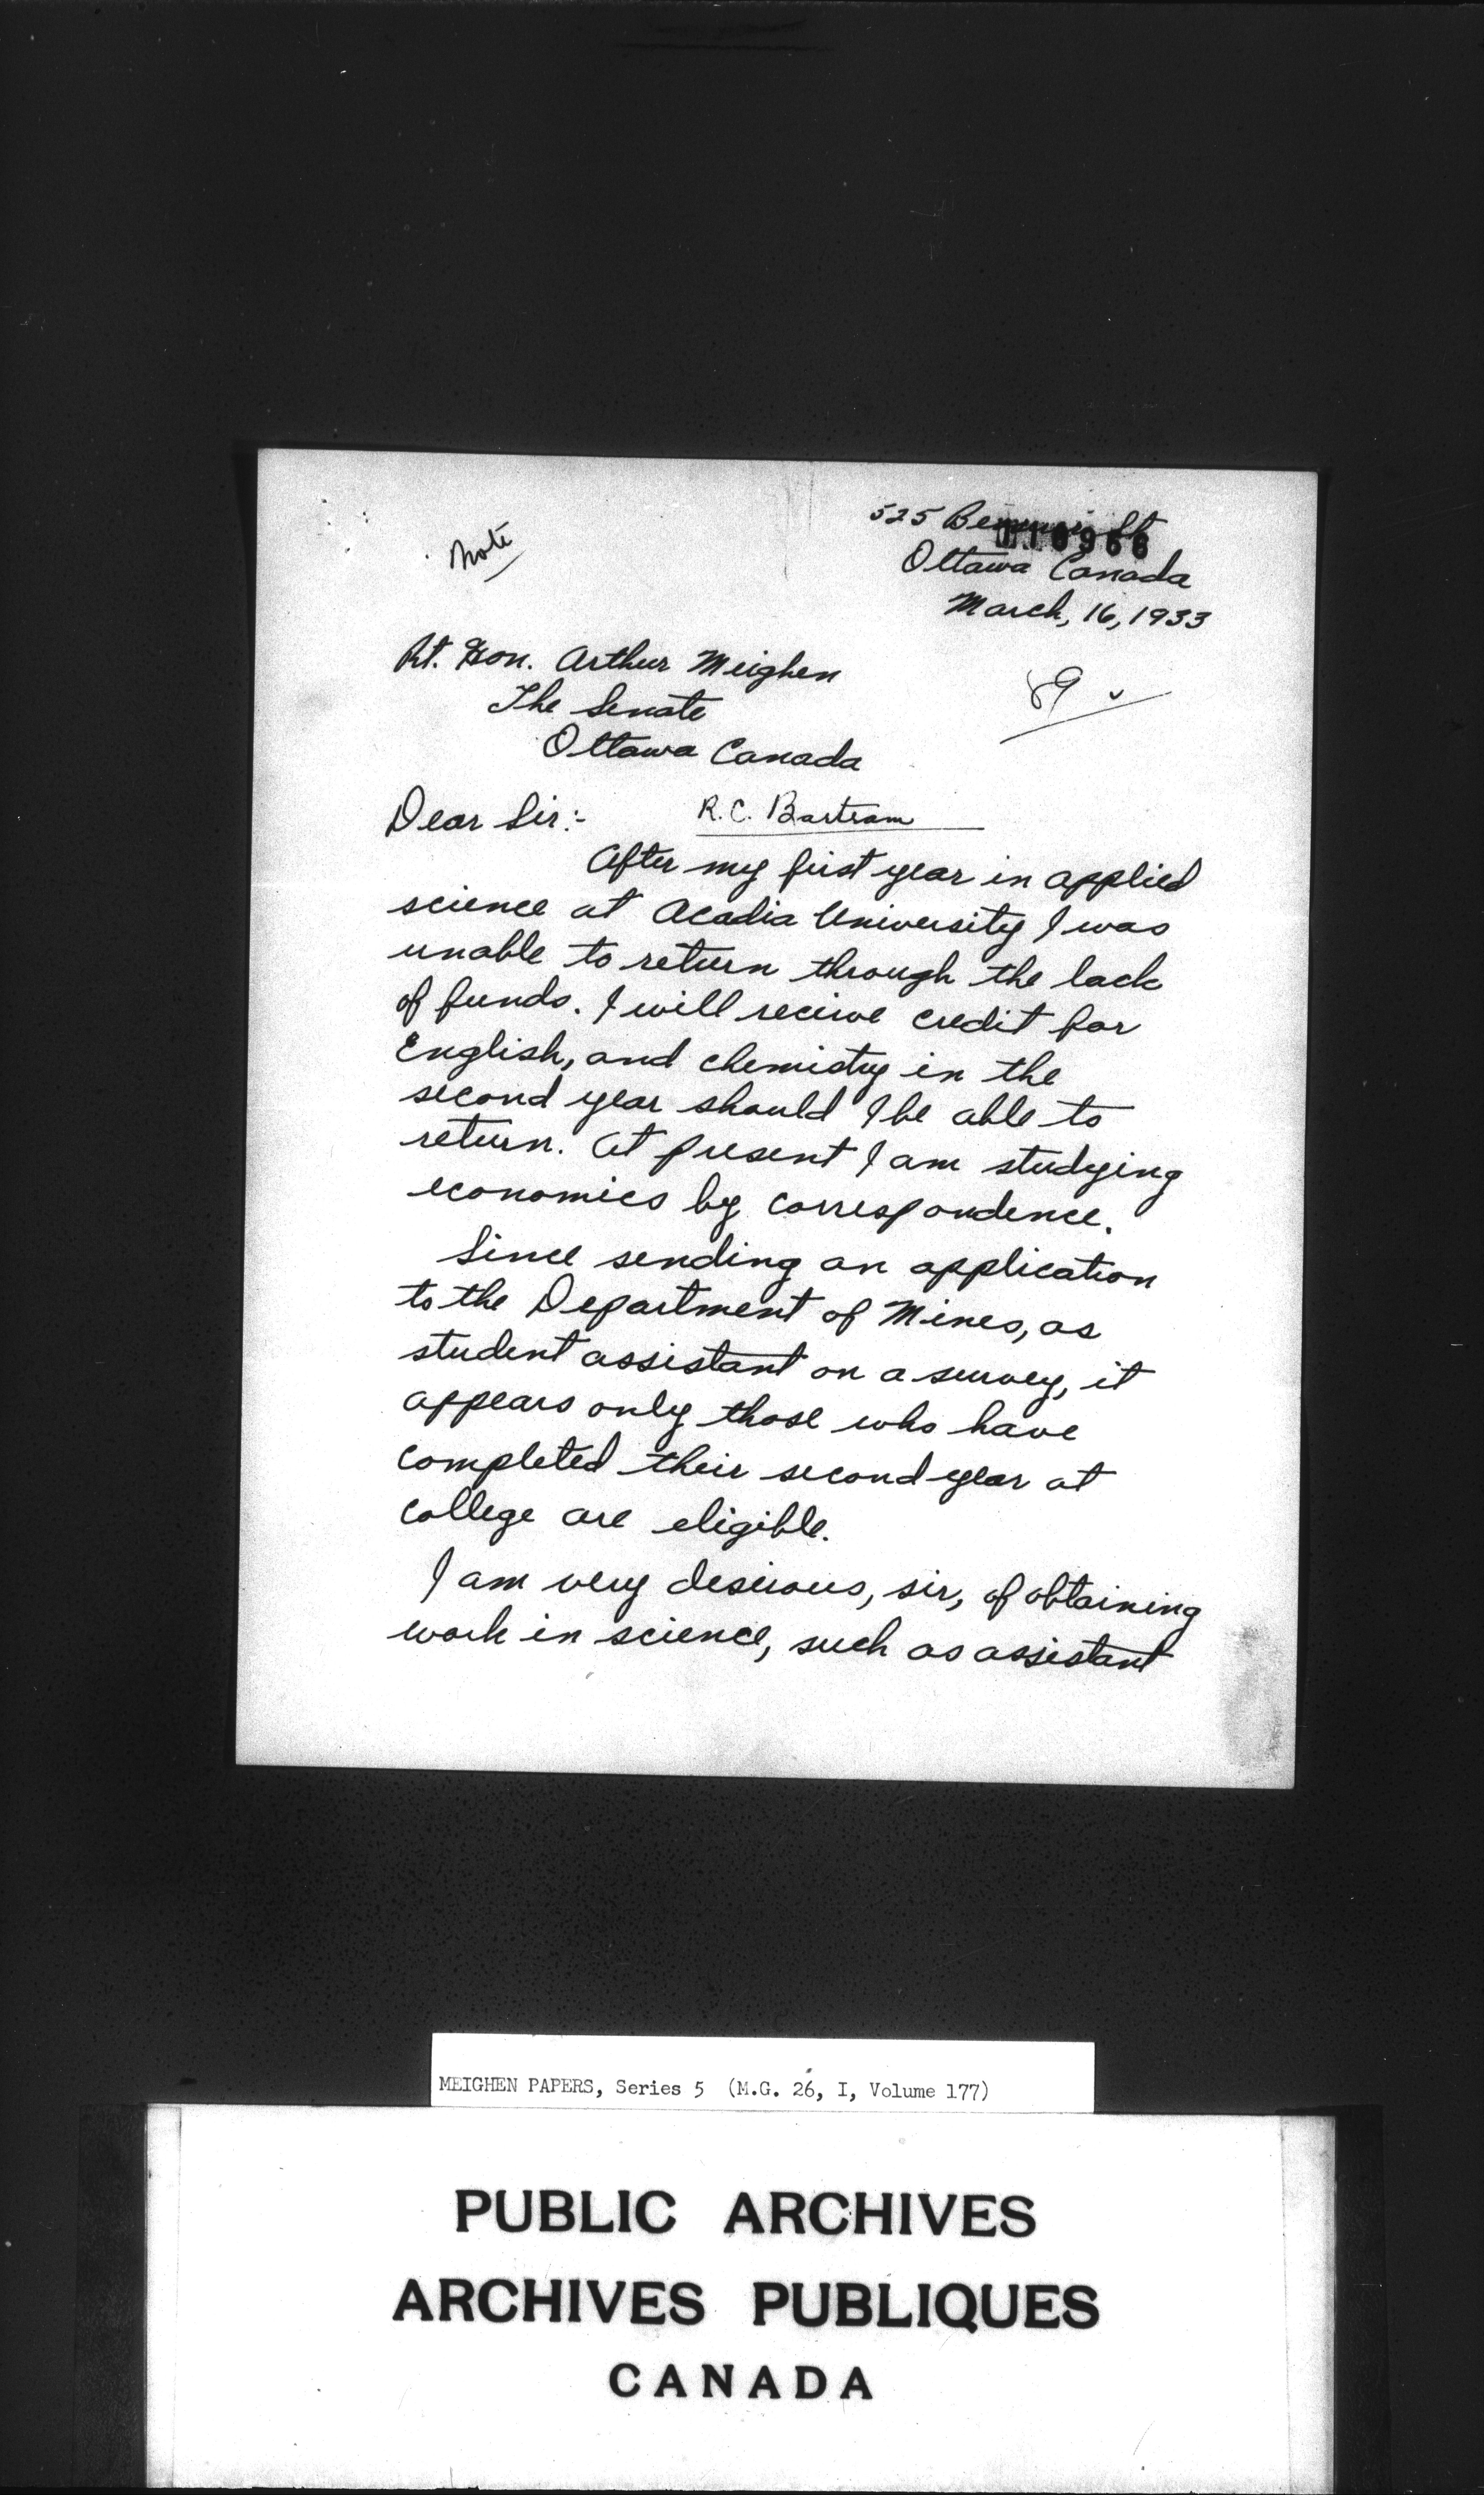 Note
525 St
Ottawa Canada
March, 16, 1933
Rt. Hon. Arthur Meighen
The Senate
Ottawa Canada
89
Dear Sir:-
R.C. Bartram
After my first year in applied
science at Acadia University I was
unable to return through the lack
of funds. I will recieve credit for
English, and chemistry in the
second year should I be able to
return. At present I am studying
economics by correspondence.
Since sending an application
to the Department of Mines, as
student assistant on a survey, it
appears only those who have
completed their second year at
college are eligible.
I am very desirous, sir, of obtaining
work in science, such as assistant
MEIGHEN PAPERS, Series 5 (M.G. 26, I, Volume 177)
PUBLIC ARCHIVES
ARCHIVES PUBLIQUES
CANADA